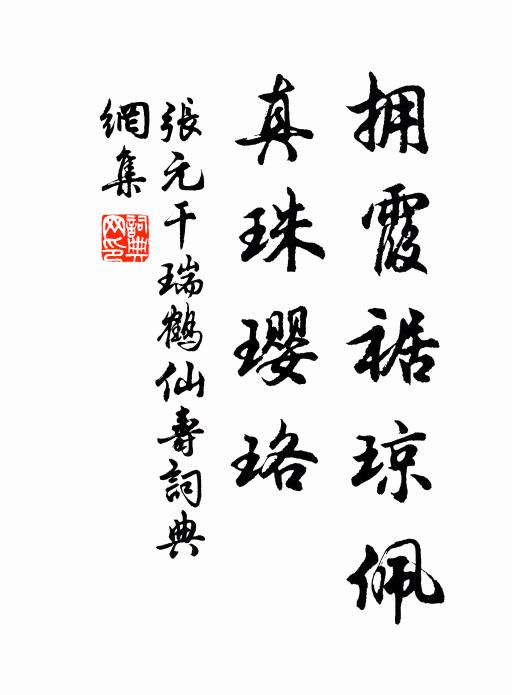 拥霞裾琼佩
真珠璎珞
張元干瑞鶴仙壽詞典
網集
詞典网印